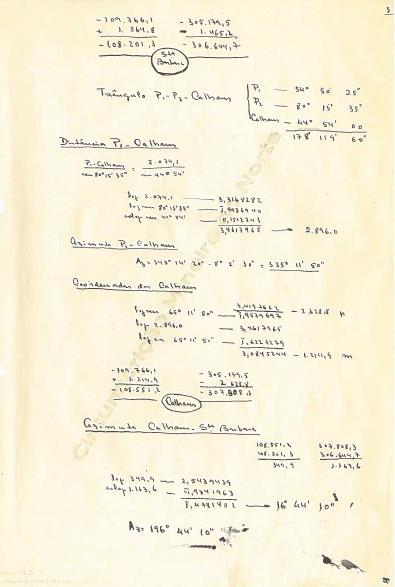 3
- 109.766,1   - 305.179,5
+ 1.564.8   - 1.465,2
- 108.201,3   - 306.644,7
Stª Barbara
Triângulo P₁-P₂-Calhaus
P₁ — 54° 50' 25"
P₂ — 80° 15' 35"
Calhaus — 44° 54' 00
178° 119' 60"
Distância P₁-Calhaus
P₁-Calhaus / sen 80° 15' 35" = 2.074,1 / sen 44° 54'
log 2.074,1 — 3,3168282
log sen 80° 15' 35" — 1,9936940
colog sen 44° 54' — 0,1512743
3,4617965 → 2.896.0
Azimute P₁-Calhaus
Az = 343° 14' 20" - 8° 2' 30" = 335° 11' 50"
Coordenadas dos Calhaus
3,4197662 — 2.628.8
log sen 65° 11' 50" — 1,9579697
log 2.896.0 — 3,4617965
log cos 65° 11' 50" — 1,6227279
3,0845244 — 1.214,9 m
- 109.766,1   - 305.179,5
+ 1.214,9   - 2.628,8
- 108.551,2   - 307.808,3
Calhaus
Azimute Calhaus - Stª Barbara
108.551,2   307.808,3
108.201,3   306.644,7
349,9   1.163,6
log 349,9 — 2,5439439
colog 1.163,6 — 4,9341963
1,4781402 → 16° 44' 10"
Az = 196° 44' 10"